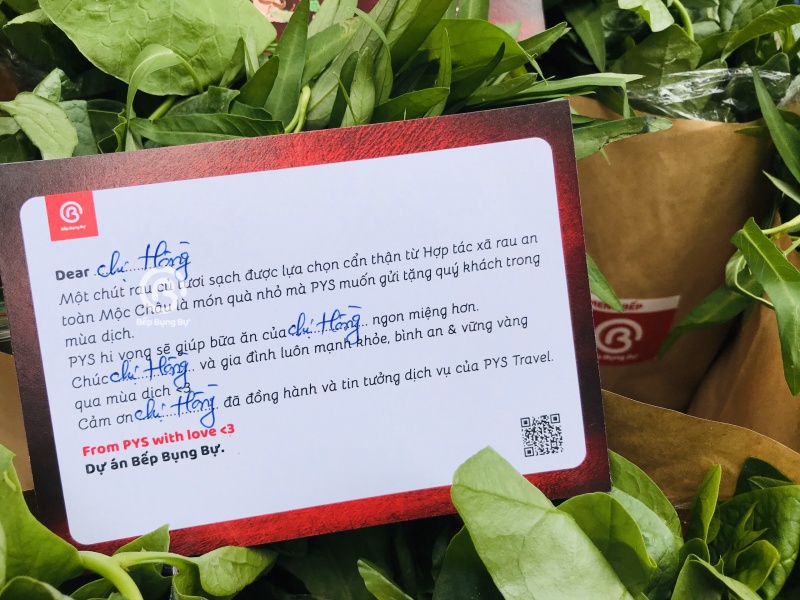 Bếp Bụng Bự
Dear chị Hồng
Một chút rau củ tươi sạch được lựa chọn cẩn thận từ Hợp tác xã rau an
toàn Mộc Châu là món quà nhỏ mà PYS muốn gửi tặng quý khách trong
mùa dịch.
PYS hi vọng sẽ giúp bữa ăn của chị Hồng ngon miệng hơn.
Chúc chị Hồng và gia đình luôn mạnh khỏe, bình an & vững vàng
qua mùa dịch <3
Cảm ơn chị Hồng đã đồng hành và tin tưởng dịch vụ của PYS Travel.
From PYS with love <3
Dự án Bếp Bụng Bự.
Bếp Bụng Bự
BẾP
Bếp Bụng Bự